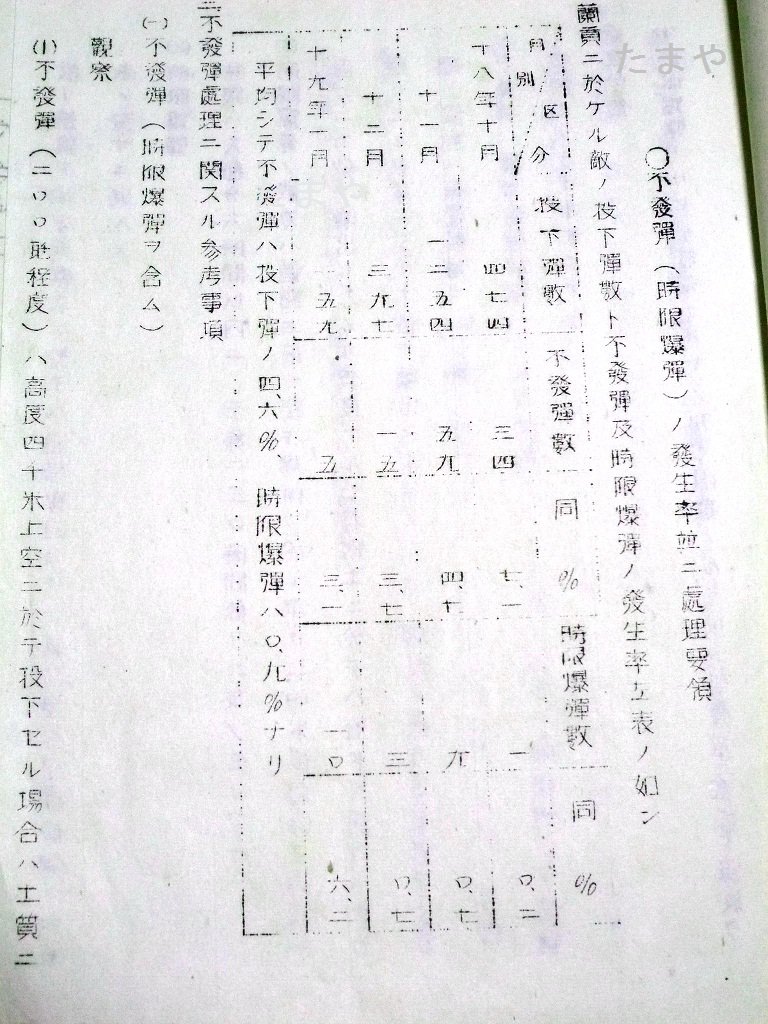 たまや
〇不發彈（時限爆彈）ノ發生率竝ニ處理要領
蘭貢ニ於ケル敵ノ投下彈數ト不發彈及時限爆彈ノ發生率左表ノ如シ
月別/区分 投下彈數 不發彈數 同% 時限爆彈數 同%
十八年十月 四七四 三四 七、一 一 〇、二
十一月 一二五四 五九 四、七 九 〇、七
十二月 三九七 一五 三、七 三 〇、七
十九年一月 一五九 五 三、一 一〇 六、二
平均シテ不發彈ハ投下彈ノ四、六%、時限爆彈ハ〇、九%ナリ
二不發彈處理ニ関スル参考事項
(一)不發彈（時限爆彈ヲ含ム）
觀察
(1)不發彈（二〇〇瓩程度）ハ高度四千米上空ニ於テ投下セル場合ハ土質ニ